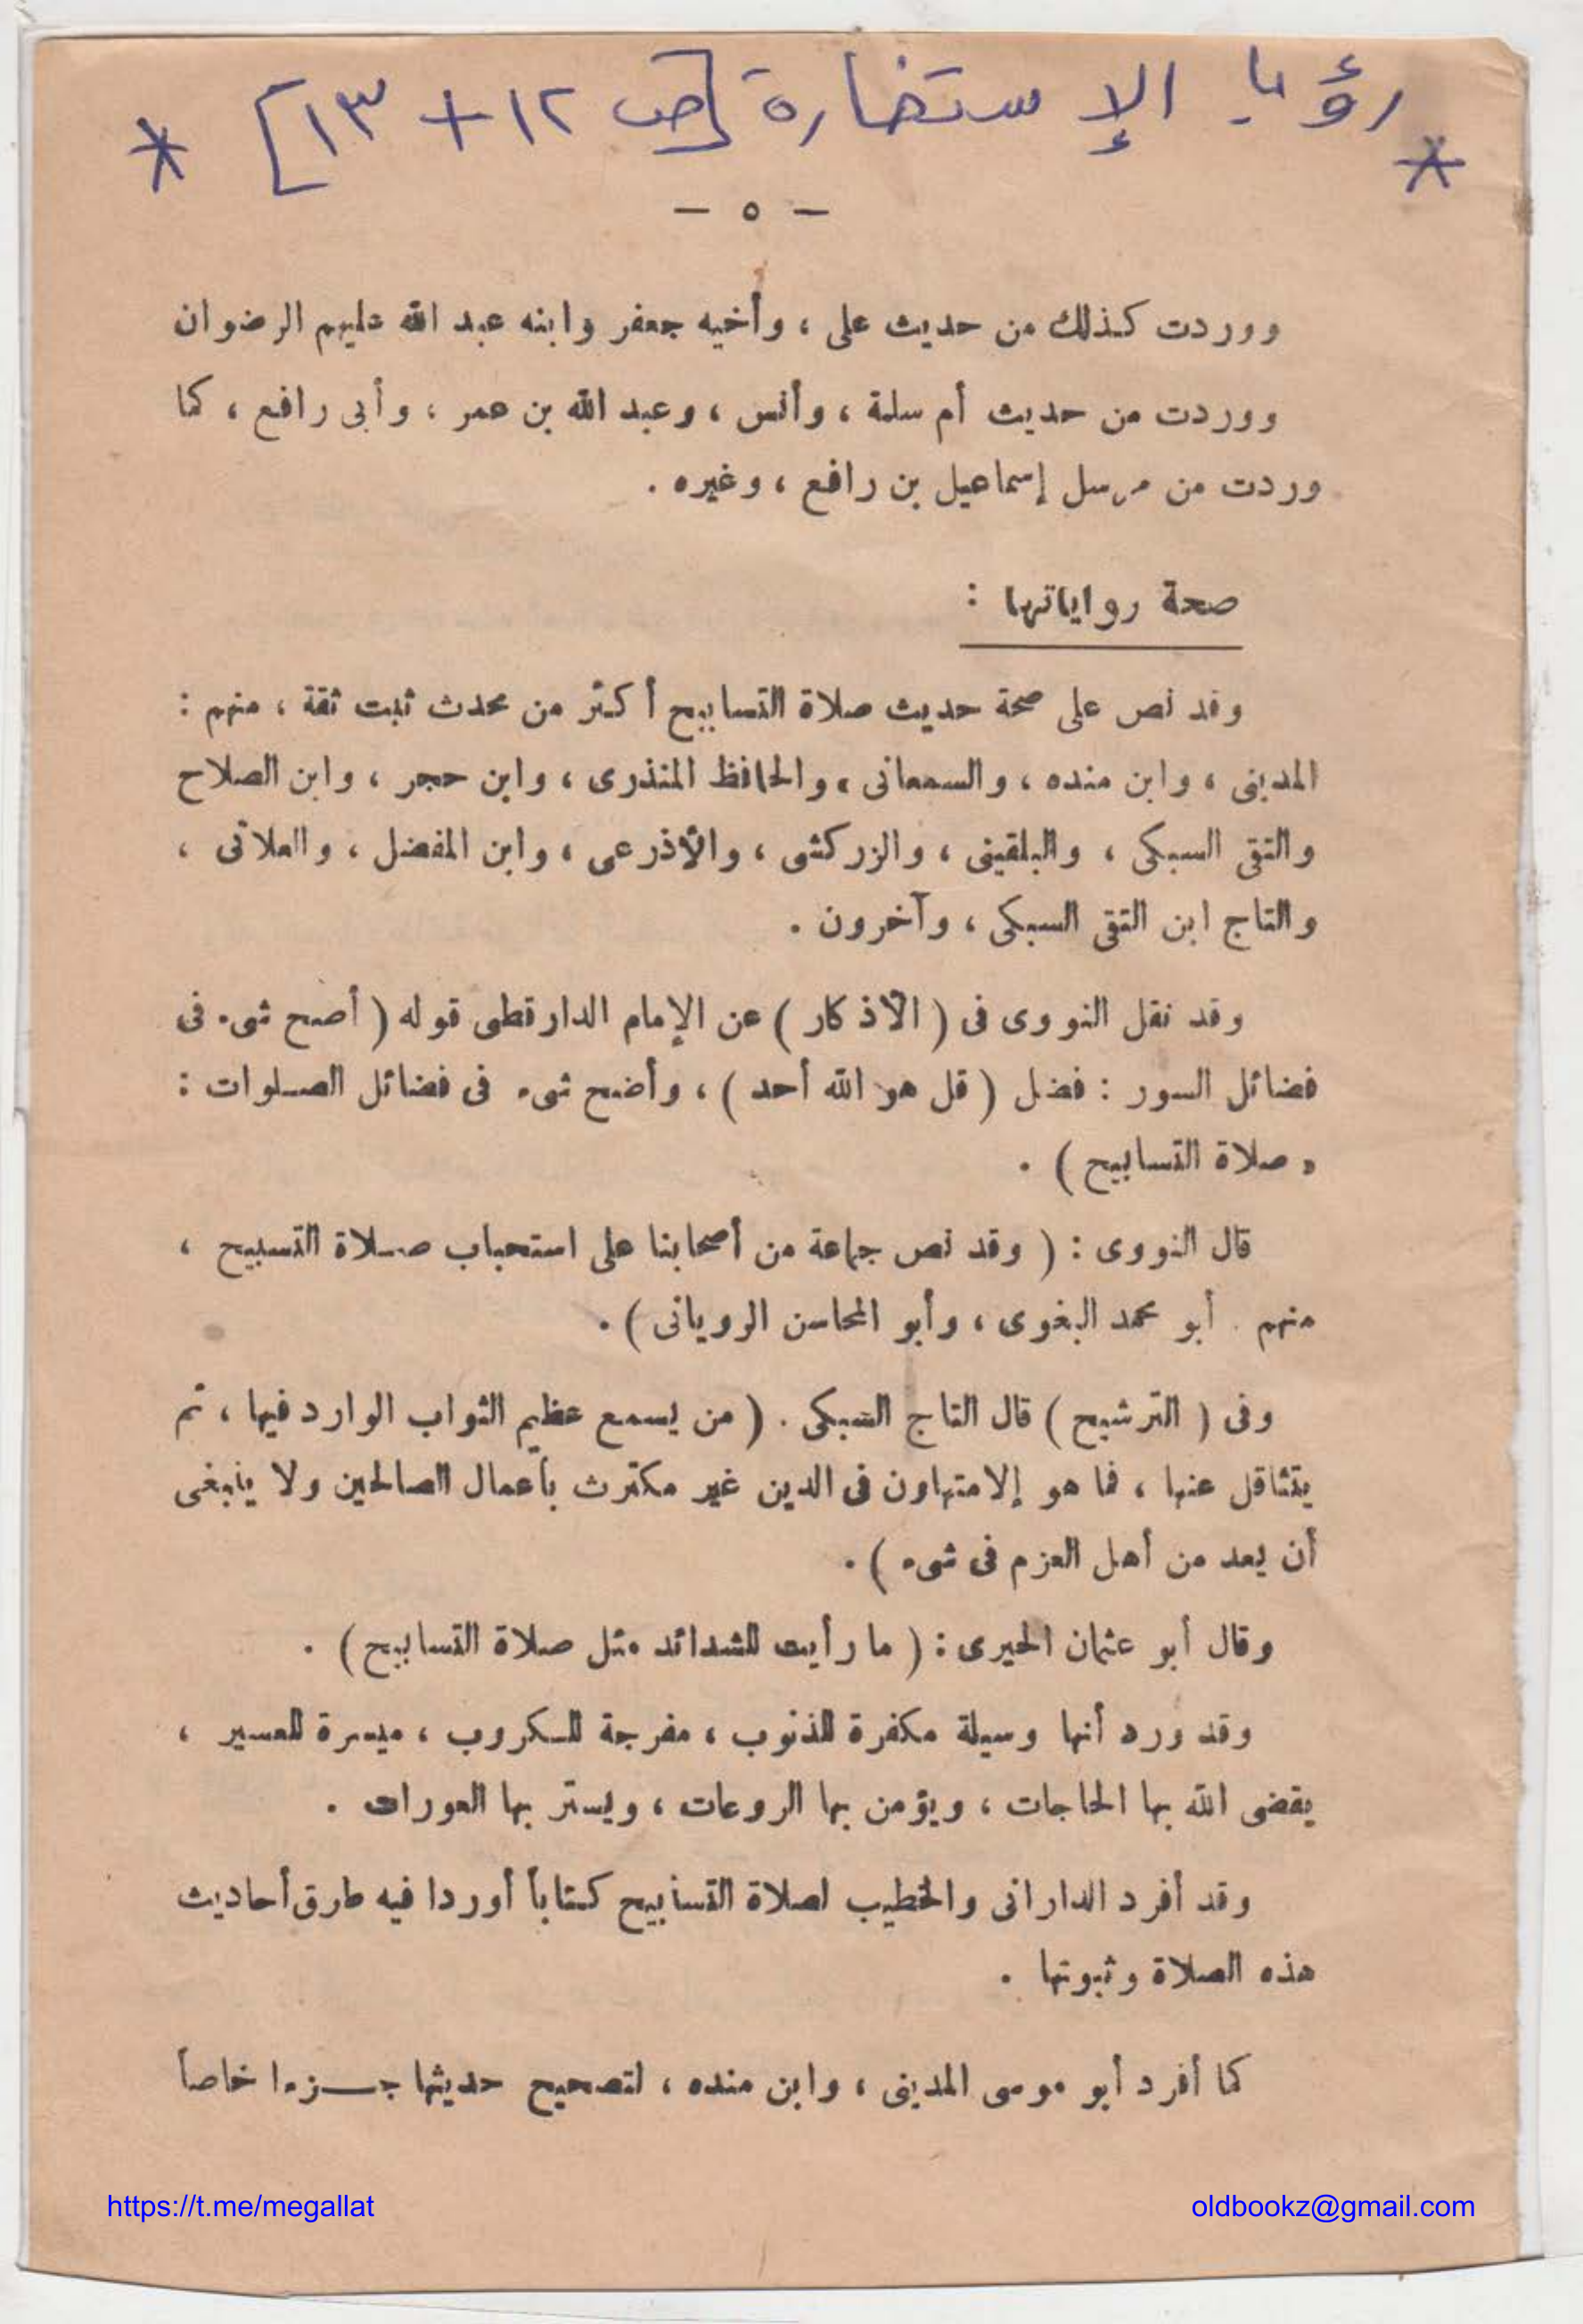 رؤيا الإستخارة [ص ١٢ + ١٣]
* *
— ٥ —
ووردت كذلك من حديث على ، وأخيه جعفر وابنه عبد الله عليهم الرضوان
ووردت من حديث أم سلمة ، وأنس ، وعبد الله بن عمر ، وأبى رافع ، كما
وردت من مرسل إسماعيل بن رافع ، وغيره .
صحة رواياتها :
وقد نص على صحة حديث صلاة التسابيح أكثر من محدث ثبت ثقة ، منهم :
المدينى ، وابن منده ، والسمعانى ، والحافظ المنذرى ، وابن حجر ، وابن الصلاح
والتقى السبكى ، والبلقينى ، والزركشى ، والأذرعى ، وابن المفضل ، والعلائى ،
والتاج ابن التقى السبكى ، وآخرون .
وقد نقل النووى فى ( الأذكار ) عن الإمام الدارقطى قوله ( أصح شىء فى
فضائل السور : فضل ( قل هو الله أحد ) ، وأضح شىء فى فضائل الصلوات :
« صلاة التسابيح ) .
قال النووى : ( وقد نص جماعة من أصحابنا على استحباب صلاة التسبيح ،
منهم . أبو محمد البغوى ، وأبو المحاسن الرويانى ) .
وفى ( الترشيح ) قال التاج السبكى . ( من يسمع عظيم الثواب الوارد فيها ، ثم
يتثاقل عنها ، فما هو إلا متهاون فى الدين غير مكترث بأعمال الصالحين ولا ينبغى
أن يعد من أهل العزم فى شىء ) .
وقال أبو عثمان الحيرى : ( ما رأيت للشدائد مثل صلاة التسابيح ) .
وقد ورد أنها وسيلة مكفرة للذنوب ، مفرجة للكروب ، ميسرة للعسير ،
يقضى الله بها الحاجات ، ويؤمن بها الروعات ، ويستر بها العورات .
وقد أفرد الدارانى والخطيب لصلاة التسابيح كتاباً أوردا فيه طرق أحاديث
هذه الصلاة وثبوتها .
كما أفرد أبو موسى المدينى ، وابن منده ، لتصحيح حديثها جزءا خاصاً
https://t.me/megallat
oldbookz@gmail.com